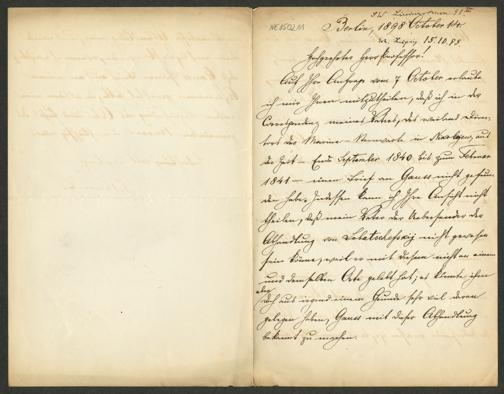 Berlin, 1898 October
15.10.98
Hochgeehrter Herr Professor!
Auf Ihre Anfrage vom 7 October erlaube
ich mir Ihnen mitzutheilen, daß ich in der
Correspondenz meines Vaters, des weiland Direc-
tors der Marine-Sternwarte in Nicolajew, aus
der Zeit – Ende September 1840 bis zum Februar
1841 – einen Brief an Gauss nicht gefun-
den habe. Indessen kann ich Ihre Ansicht nicht
theilen, daß mein Vater der Uebersender der
Abhandlung von Lobatschefskij nicht gewesen
sein könne, weil er mit diesem nicht an einem
und demselben Orte gelebt hat; es könnte ihm
doch aus irgend einem Grunde sehr viel daran
gelegen haben, Gauss mit dieser Abhandlung
bekannt zu machen.